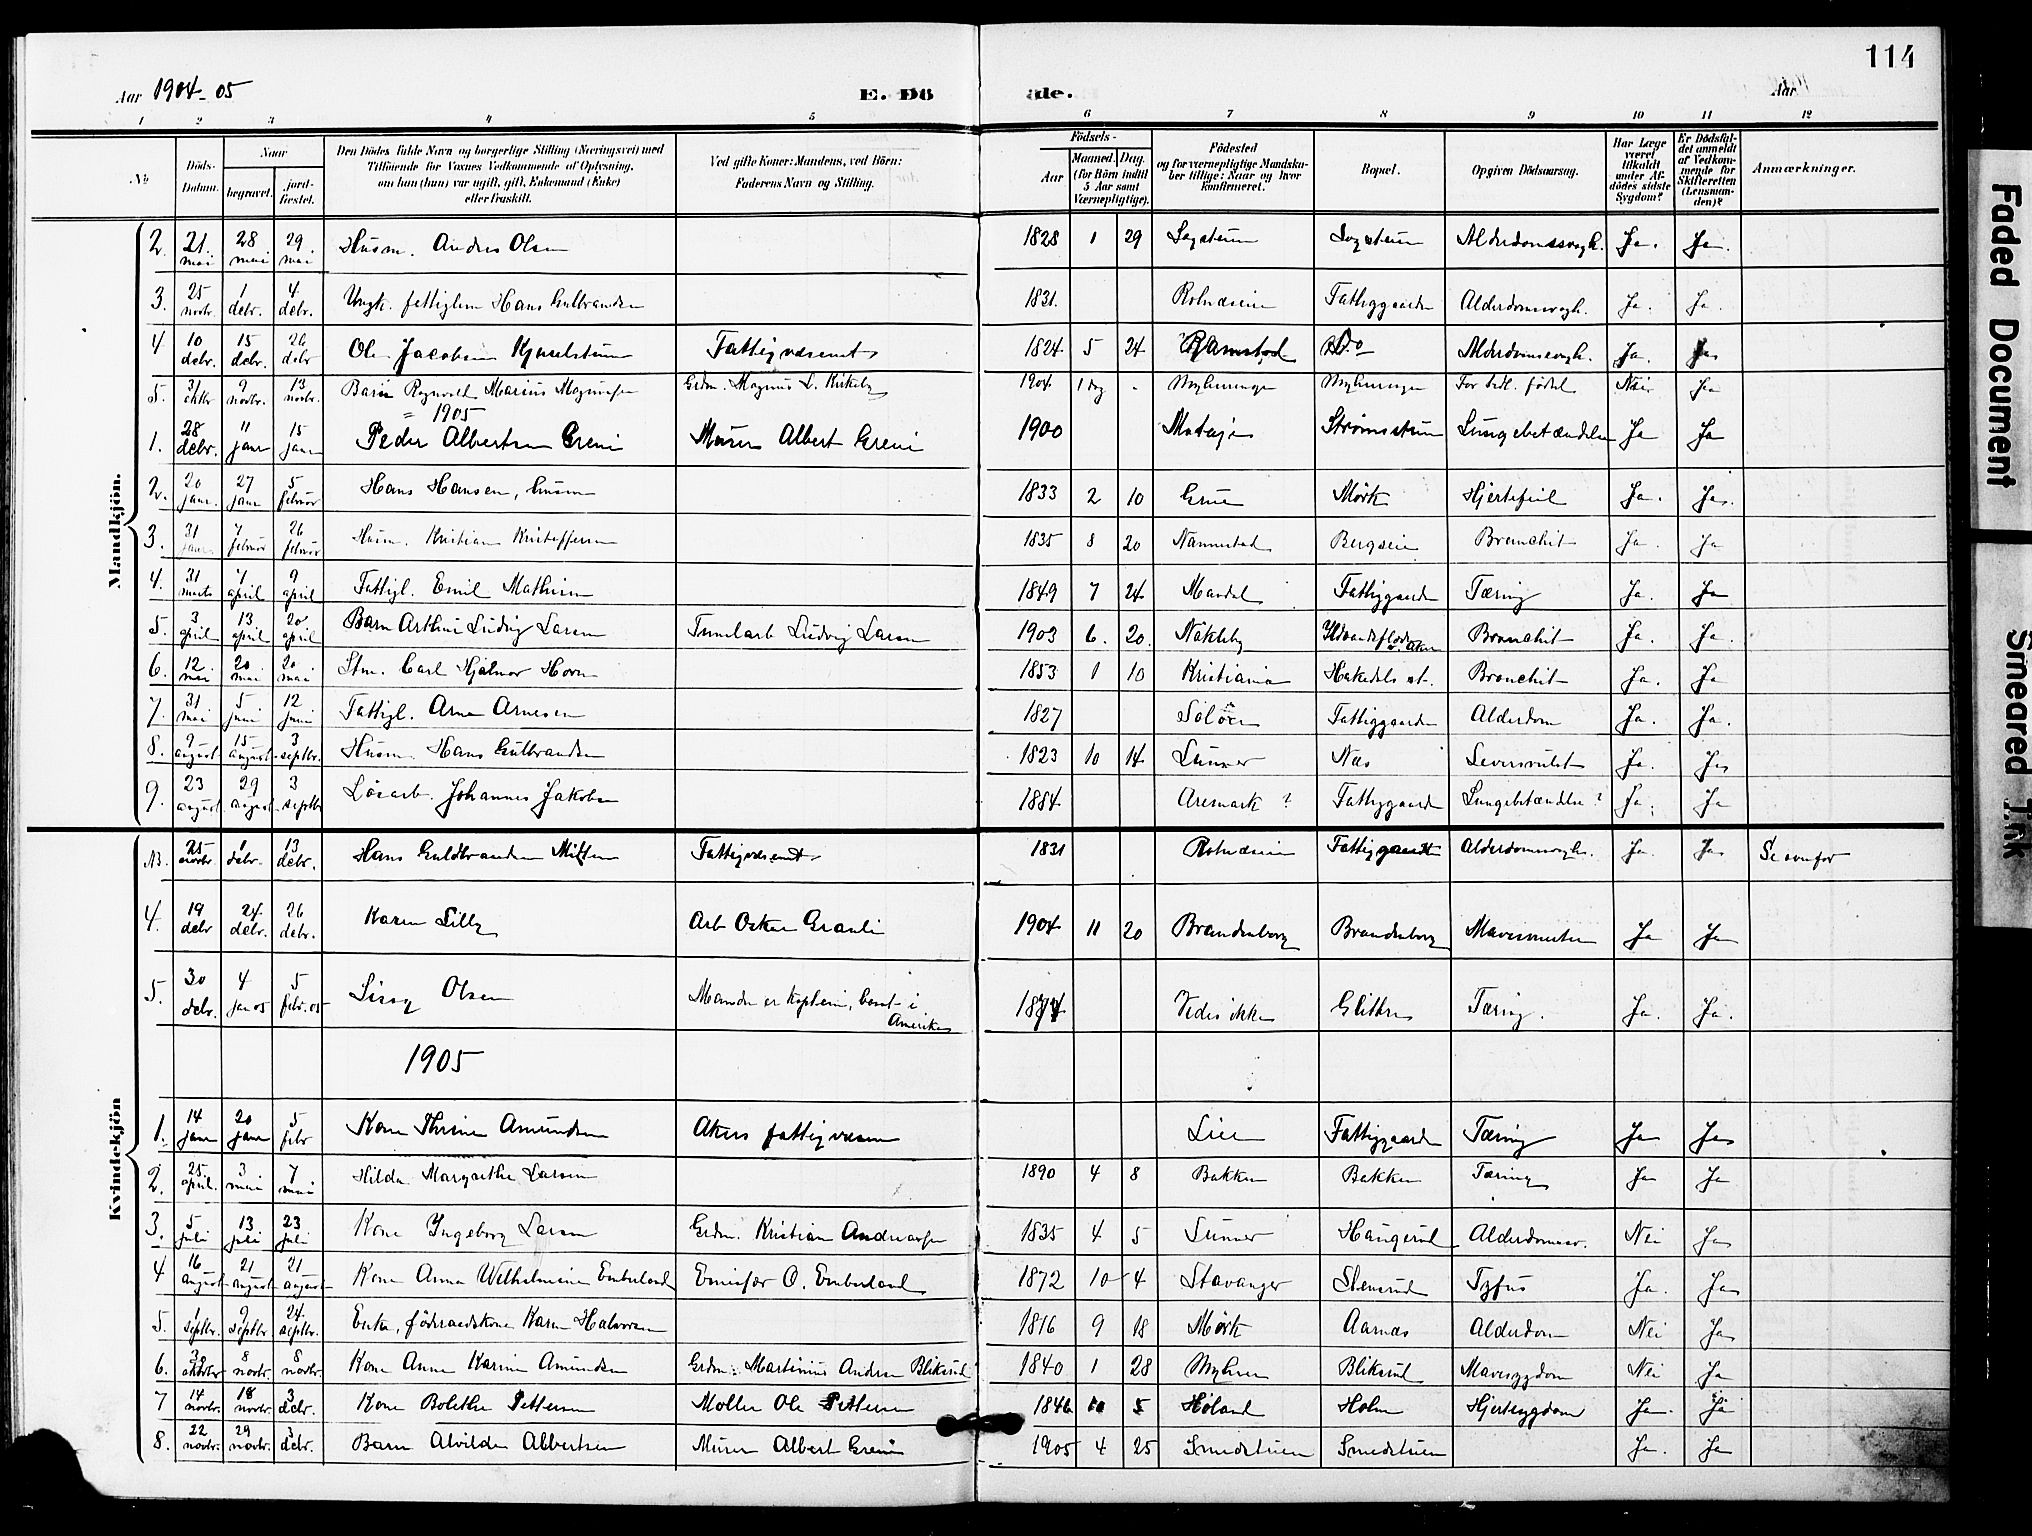 114
Aar 1904-05
E. Dö
de.
Aar
1 2 3 4 5 6 7 8 9 10 11 12
No
Döds-Datum.
Naar
begravet.
jordfæstet.
Den Dödes fulde Navn og borgerlige Stilling (Næringsvei) med Tilföiende for Voxnes Vedkommende af Oplysning, om han (hun) var ugift, gift, Enkemand (Enke) eller fraskilt.
Ved gifte Koner: Mandens, ved Börn: Faderens Navn og Stilling.
Födsels-
Aar
Maaned. Dag. (for Börn indtil 5 Aar samt Værnepligtige).
Födested og for værnepligtige Mandskaber tillige: Naar og hvor konfirmeret.
Bopæl.
Opgiven Dödsaarsag.
Har Læge været tilkaldt under Afdödes sidste Sygdom?
Er Dödsfaldet anmeldt af Vedkommende for Skifteretten (Lensmanden)?
Anmærkninger.
Mandkjön.
2. 21 mai 28 mai 29 mai Husm. Andres Olsen 1828 1 29 Alderdomssvagh. Ja. Ja.
3. 25 novbr. 1 debr. 4 debr. Ungk. fattiglem Hans Gulbrandsen 1831. Rotnæseie Fattiggaarden Alderdomssvagh. Ja. Ja.
4 10 debr. 15 debr. 26 debr Ole Jacobsen Fattigvæsenet 1824 5 24 Ramstad Do Alderdomssvagh. Ja. Ja
5. 31 oktbr 9 novbr. 13 novbr. Barn Ragnvald Marius Magnusen Grdm. Magnus L. Kirkeby 1904 1 dag - For tidl. födt Nei Ja
1905
1. 28 debr. 11 janr 15 janr Peder Albertsen Greni Murer Albert Greni 1900 Lungebetændelse Ja Ja
2. 20 janr. 27 janr 5 februar Hans Hansen, husm 1833 2 10 Grue Mörk Hjertefeil Ja. Ja.
3. 31 janr. 7 februar 26 februar Husm. Kristian Kristoffersen 1835 8 20 Nannestad Bergseie Bronchit Ja. Ja
4. 31 marts 7 april 9 april Fattigl. Emil Mathisen 1849 7 24 Mandal Fattiggaarden Tæring Ja. Ja
5. 3 april 13 april 20 april Barn Arthur Ludvig Larsen Tunelarb Ludvig Larsen 1903 6. 20. Nakleby Aker Bronchit Ja. Ja.
6. 12 mai 20 mai 20 mai Stm. Carl Hjalmar Horn 1853 1 10 Kristiania Hakedals st. Bronchit Ja. Ja
7. 31 mai 5 juni 12 juni Fattigl. Arne Arnesen 1827 Solöer Fattiggaarden Alderdom Ja. Ja.
8. 9 august 15 august 3 septbr. Husm. Hans Gulbrandsen 1823 10 14 Lunner Næs Leversvulst Ja. Ja
9. 23 august 29 august 3 septbr Lösarb. Johannes Jakobsen 1884 Aremark? Fattiggaarden Lungebetændelse? Ja. Ja
Kvindekjön
NB. 25 novbr. 1 debr. 13 debr. Hans Guldbrandsen Fattigvæsenet 1831 Rotnæseie Fattiggaarden Alderdomssvagh. Ja. Ja Se ovenfor
4. 19 debr 24 debr. 26 debr. Karen Lilly Arb Oskar Granli 1904 11 20 Brandenborg Brandenborg Ja Ja
5. 30 debr. 4 jan 05 5 febr. 05 Lissy Olsen Manden er kaptein, bosat i Amerika 1874 Vides ikke Glittre Tæring. Ja. Ja.
1905
1. 14 janr 20 janr 5 febr Kone Thrine Amundsen Akers fattigvæsen Lier Fattiggaarden Tæring Ja Ja
2. 25 april. 3 mai 7 mai Hilda Margrethe Larsen 1890 4 8 Bakken Bakken Tæring Ja Ja
3. 5 juli 13 juli 23 juli Kone Ingeborg Larsen Grdm. Kristian Andreassen 1835 4 5 Lunner Haugerud Alderdomssv. Nei Ja
4 16 august 21 august 21 august Kone Anna Wilhelmine Emberland Emissær O. Emberland 1872 10 4 Stavanger Stensrud Tyfus Ja. Ja
5. 1 septbr. 9 septbr. 24 septbr. Enke, föderaadskone Karen Halvorsen 1816 9 18 Mörk Aarnæs Alderdom Nei Ja
6. oktober 8 novbr. 8 novbr. Kone Anne Karine Amundsen Grdm. Martinius Andersen Bliksrud 1840 1 28 Myhren Bliksrud Mavesygdom Nei Ja
7 14 novbr. 18 novbr. 3 debr. Kone Bolethe Pettersen Möller Ole Pettersen 1846 10 5 Höland Holm Hjertesygdom Ja. Ja
8. 22 novbr. 29 novbr. 3 debr. Barn Alvilde Albertsen Murer Albert Greni 1905 4 25 Smedstuen Smedstuen Ja. Ja
Faded Document
Smeared Ink